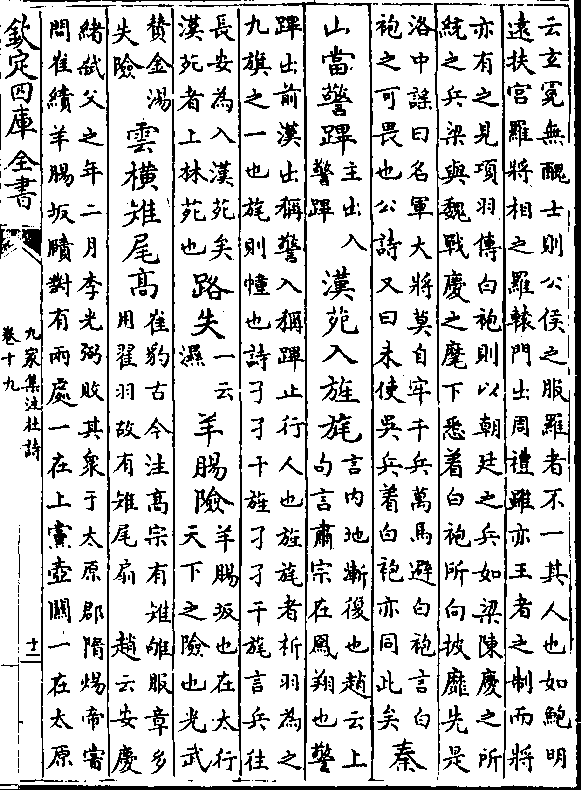 云立冕無醜士則公侯之服羅者不一其人也如鮑明
遠扶宫羅將相之羅轅門出周禮雖亦王者之制而將
亦有之見項羽傳白袍則以朝廷之兵如梁陳慶之所
統之兵梁與魏戰慶之麾下悉着白袍所向披靡先是
洛中謡曰名軍大將莫自牢千兵萬馬避白袍言白
袍之可畏也公詩又曰未使吳兵着白袍亦同此矣
秦
山當警蹕
主出入
警蹕
漢苑入旌旄
言内地漸復也趙云上
句言肅宗在鳳翔也警
蹕出前漢出稱警入稱蹕止行人也旌旄者析羽為之
九旗之一也旄則幢也詩孑孑干旌孑孑干旄言兵往
長安為入漢苑矣
漢苑者上林苑也
路失
一云
濕
羊腸險
羊腸坂也在太行
天下之險也光武
賛金湯
失險
雲橫雉尾高
崔豹古今注髙宗有雉雊服章多
用翟羽故有雉尾扇 趙云安慶
緒弑父之年二月李光弼敗其衆于太原郡隋煬帝甞
問崔績羊腸坂賾對有兩處一在上黨壺關一在太原
欽定四庫全書
九家集注杜詩
卷十九
十一